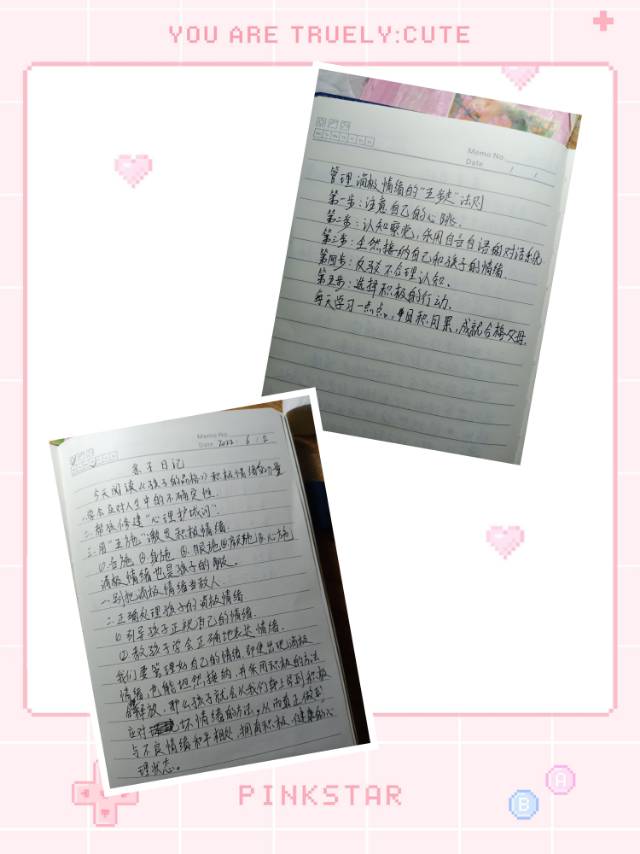 YOU ARE TRUELY:CUTE
Memo No.
Date / /
管理消极情绪的"五步走"法则
第一步：注意自己的心跳。
第二步：认知察觉，采用自言自语的对话形式
第三步：坦然接纳自己和孩子的情绪。
第四步：反驳不合理认知。
第五步：选择积极的行动。
每天学习一点点，日积月累，成就合格父母。
Memo No.
Date 2022. 6 / 2
亲子日记
今天阅读《孩子的品格》积极情绪的力量
一.学会应对人生中的不确定性.
二.帮孩修建"心理护城河"
三.用"五施"激发积极情绪.
①言施 ②身施 ③眼施④颜施⑤心施
消极情绪也是孩子的
一.别把消极情绪当敌人.
二.正确处理孩子的消极情绪.
①引导孩子正视自己的情绪.
②教孩子学会正确地表达情绪.
我们要管理好自己的情绪.即使出现消极
情绪,也能坦然接纳,并采用积极的方法
释放,那么孩子就会从我们身上得到积极
应对坏情绪的方法.从而真正做到
与不良情绪和平相处,拥有积极、健康的心
理状态。
PINKSTAR
A
B